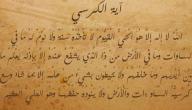 آية الكرسي
الله لا إله إلا هو الحي القيوم لا تأخذه سنة ولا نوم له ما في
السماوات وما في الأرض من ذا الذي يشفع عنده إلا بإذنه يعلم ما
بين أيديهم وما خلفهم ولا يحيطون بشيء من علمه إلا بما شاء وسع
كرسيه السماوات والأرض ولا يئوده حفظهما وهو العلي العظيم